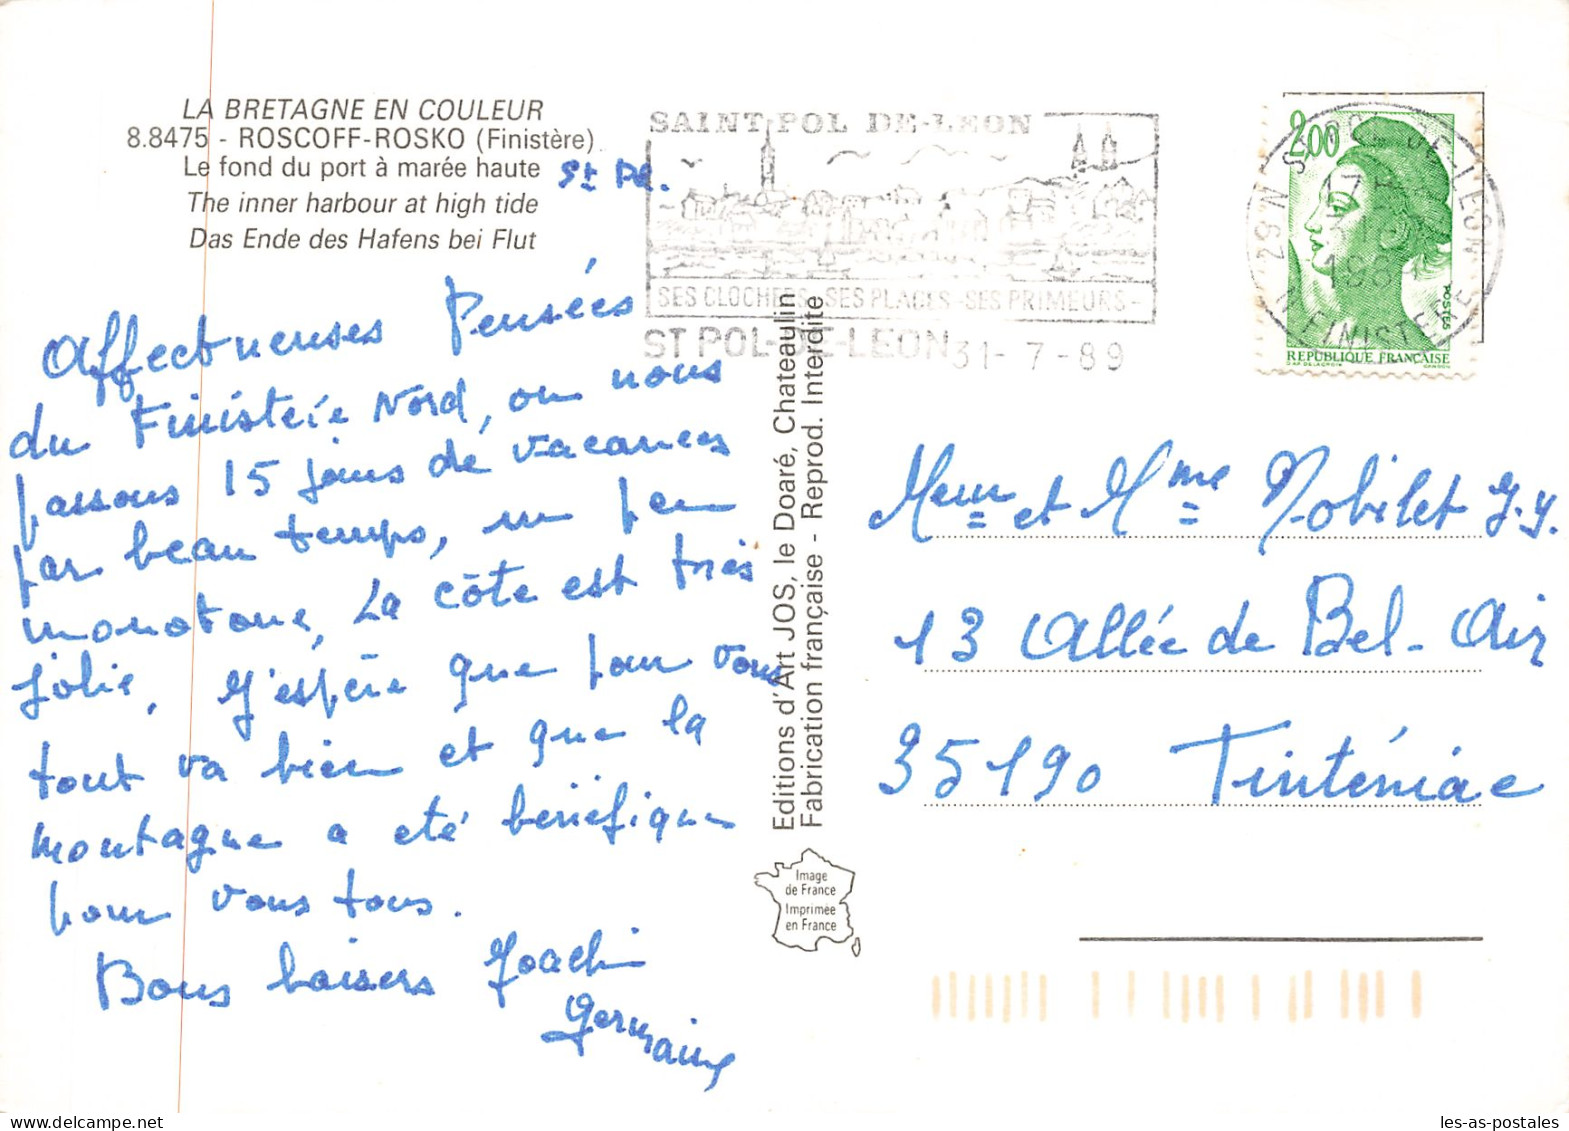 LA BRETAGNE EN COULEUR
8.8475 - ROSCOFF-ROSKO (Finistère)
Le fond du port à marée haute
The inner harbour at high tide
Das Ende des Hafens bei Flut
Affectueuses Pensées
du Finistère Nord, ou nous
passons 15 jours de vacances
par beau temps, un peu
monotone, La côte est très
jolie, J'espère que pour vous
tout va bien et que la
montagne a eté bénéfique
pour vous tous.
Bons baisers Joachi
Germaine
Editions d'Art JOS, le Doaré, Chateaulin
Fabrication française - Reprod. Interdite
Image
de France
Imprimée
en France
SAINT POL DE-LEON
SES CLOCHERS-SES PLAGES-SES PRIMEURS-
ST POL-DE-LEON 31-7-89
2,00
POSTES
REPUBLIQUE FRANÇAISE
DE-LEON
29 N. FINISTERE
Mr et Mme Nobilet J.Y.
13 Allée de Bel-Air
35190 Tinténiac
les-as-postales